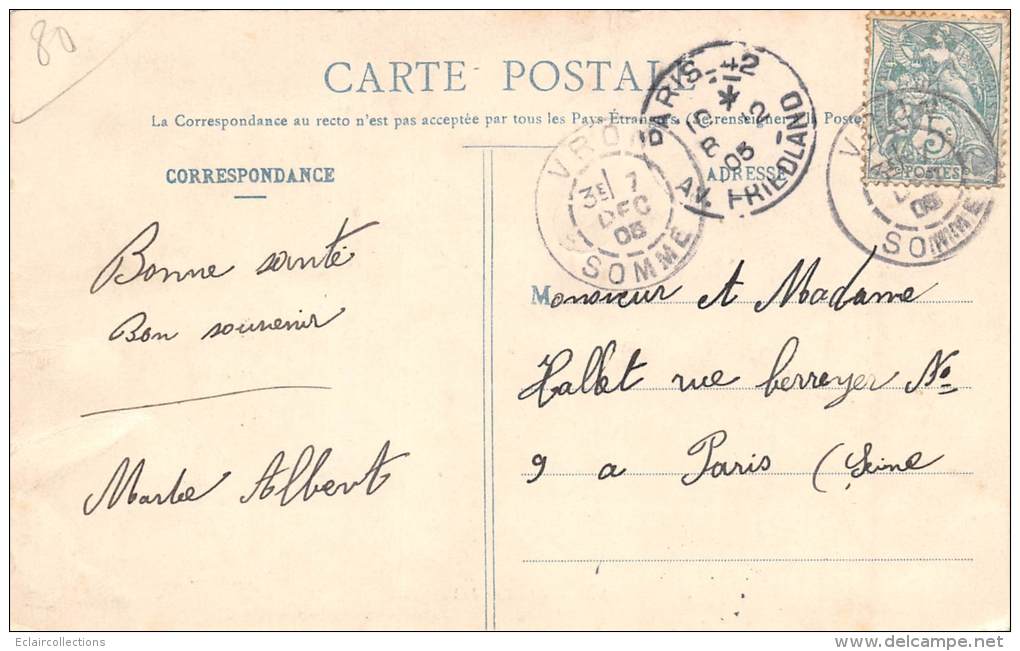 80
CARTE POSTALE
La Correspondance au recto n'est pas acceptée par tous les Pays Étrangers (Se renseigner à la Poste
CORRESPONDANCE
ADRESSE
Bonne santé
Bon souvenir
Marthe Albert
Monsieur et Madame
Hallet rue berreyer No
9 a Paris (Seine
PARIS
AV. FRIEDLAND
VRON
3E 7
DEC
05
SOMME
5c
POSTES
SOMME
Eclaircollections
delcampe.net